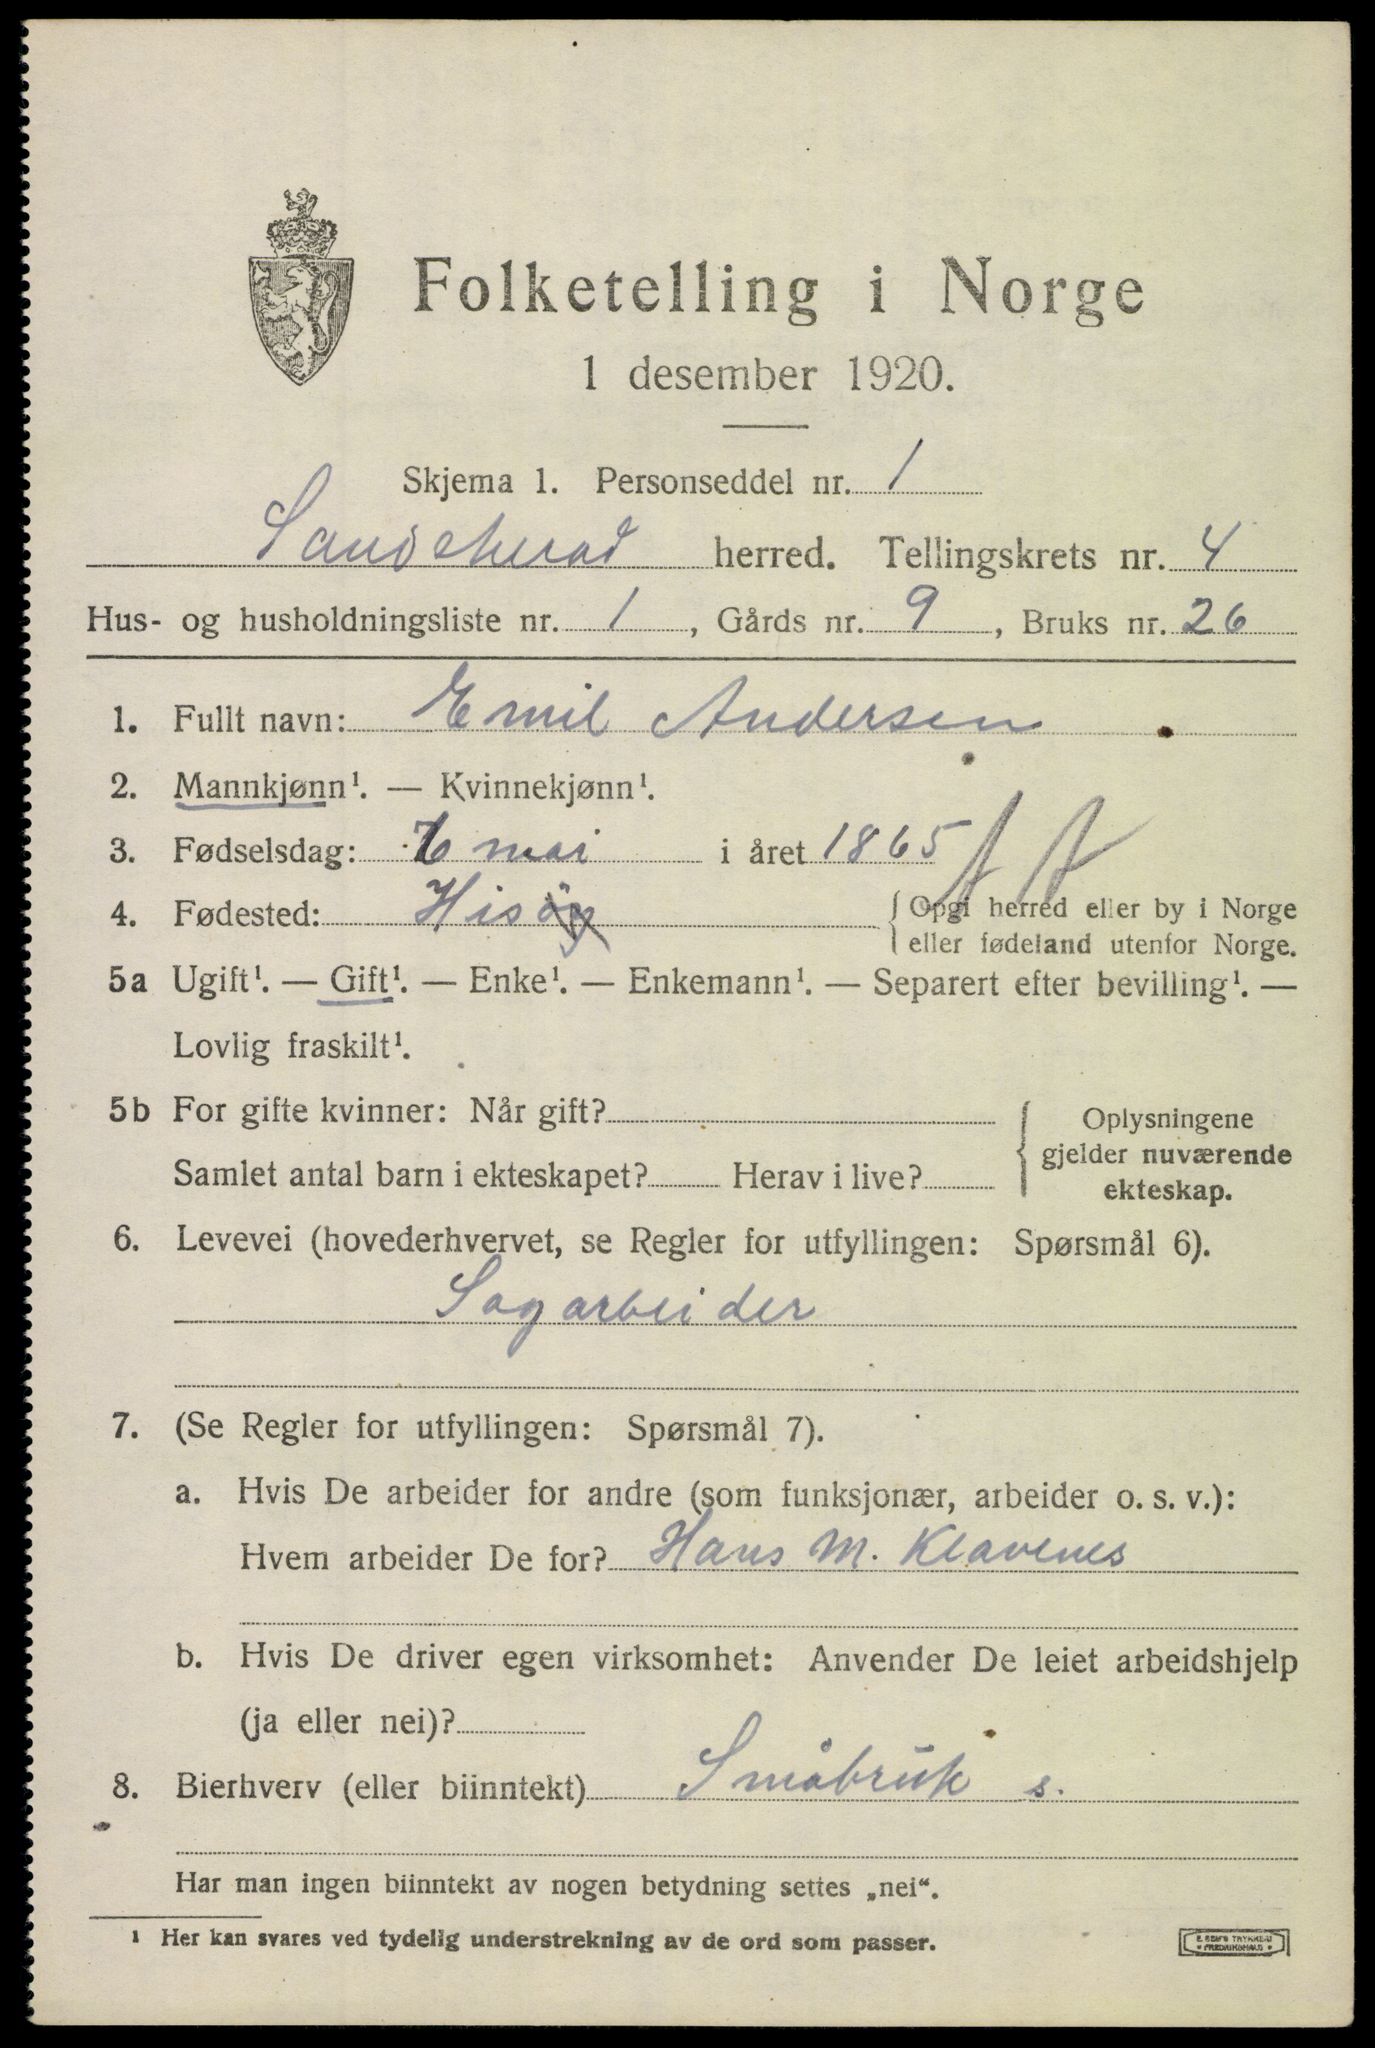 Folketelling i Norge
1 desember 1920.
Skjema 1. Personseddel nr. 1
Sandeherad herred. Tellingskrets nr. 4
Hus- og husholdningsliste nr. 1, Gårds nr. 9, Bruks nr. 26
1. Fullt navn: Emil Andersen
2. Mannkjønn¹. — Kvinnekjønn¹.
3. Fødselsdag: mai i året 1865
4. Fødested: Hisøy { Opgi herred eller by i Norge
eller fødeland utenfor Norge.
5a Ugift¹. — Gift¹. — Enke¹. — Enkemann¹. — Separert efter bevilling¹. —
Lovlig fraskilt¹.
5b For gifte kvinner: Når gift? { Oplysningene
gjelder nuværende
Samlet antal barn i ekteskapet? Herav i live?
ekteskap.
6. Levevei (hovederhvervet, se Regler for utfyllingen: Spørsmål 6).
Sagarbeider
7. (Se Regler for utfyllingen: Spørsmål 7).
a. Hvis De arbeider for andre (som funksjonær, arbeider o. s. v.):
Hvem arbeider De for? Hans M. Klavenes
b. Hvis De driver egen virksomhet: Anvender De leiet arbeidshjelp
(ja eller nei)?
8. Bierhverv (eller biinntekt) Småbruk s.
Har man ingen biinntekt av nogen betydning settes „nei“.
¹ Her kan svares ved tydelig understrekning av de ord som passer.